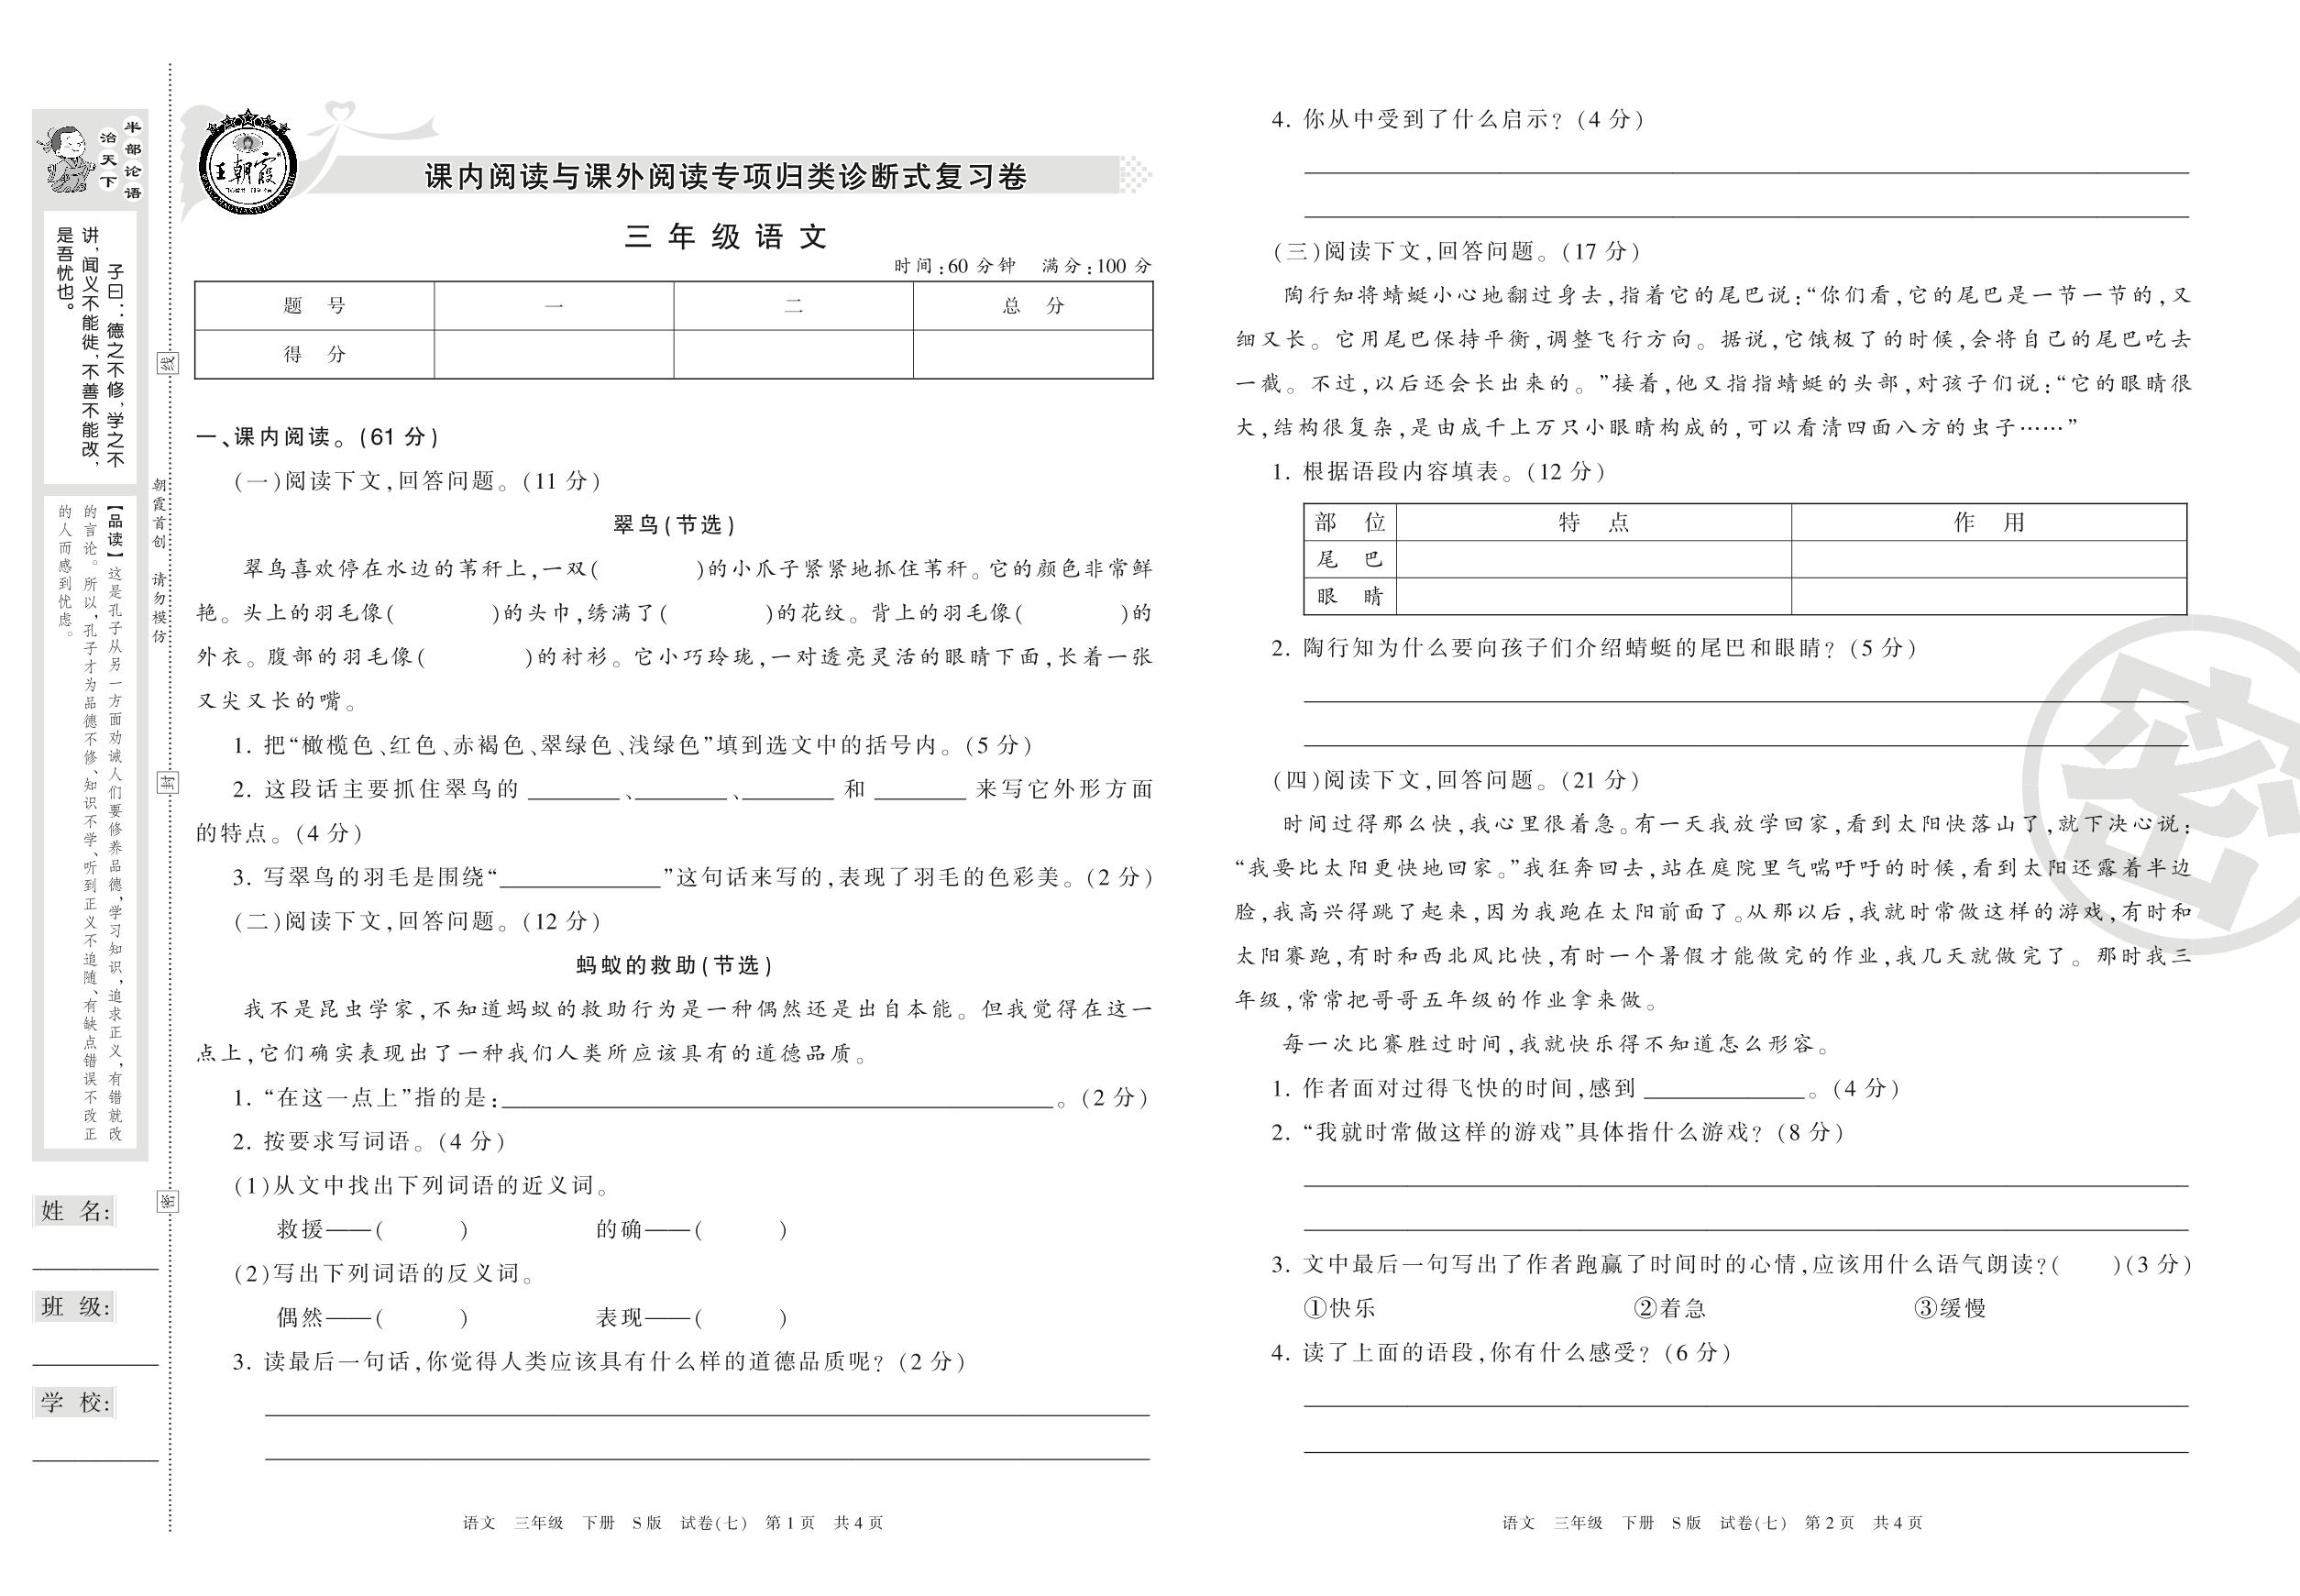 半部论语
治天下
子曰：德之不修，学之不
讲，闻义不能徙，不善不能改，
是吾忧也。
【品读】这是孔子从另一方面劝诫人们要修养品德，学习知识，追求正义，有错就改
的言论。所以，孔子才为品德不修、知识不学、听到正义不追随、有缺点错误不改正
的人而感到忧虑。
姓 名:
班 级:
学 校:
朝霞首创 请勿模仿
线
封
密
王朝霞
课内阅读与课外阅读专项归类诊断式复习卷
三年级语文
时间:60 分钟 满分:100 分
题 号 一 二 总 分
得 分
一、课内阅读。(61 分)
(一)阅读下文,回答问题。(11 分)
翠鸟(节选)
翠鸟喜欢停在水边的苇秆上,一双( )的小爪子紧紧地抓住苇秆。它的颜色非常鲜
艳。头上的羽毛像( )的头巾,绣满了( )的花纹。背上的羽毛像( )的
外衣。腹部的羽毛像( )的衬衫。它小巧玲珑,一对透亮灵活的眼睛下面,长着一张
又尖又长的嘴。
1. 把“橄榄色、红色、赤褐色、翠绿色、浅绿色”填到选文中的括号内。(5 分)
2. 这段话主要抓住翠鸟的 ________、________、________ 和 ________ 来写它外形方面
的特点。(4 分)
3. 写翠鸟的羽毛是围绕“______________”这句话来写的,表现了羽毛的色彩美。(2 分)
(二)阅读下文,回答问题。(12 分)
蚂蚁的救助(节选)
我不是昆虫学家,不知道蚂蚁的救助行为是一种偶然还是出自本能。但我觉得在这一
点上,它们确实表现出了一种我们人类所应该具有的道德品质。
1. “在这一点上”指的是:________________________________________。(2 分)
2. 按要求写词语。(4 分)
(1)从文中找出下列词语的近义词。
救援——( ) 的确——( )
(2)写出下列词语的反义词。
偶然——( ) 表现——( )
3. 读最后一句话,你觉得人类应该具有什么样的道德品质呢? (2 分)
语文 三年级 下册 S版 试卷(七) 第1页 共4页
4. 你从中受到了什么启示? (4 分)
(三)阅读下文,回答问题。(17 分)
陶行知将蜻蜓小心地翻过身去,指着它的尾巴说:“你们看,它的尾巴是一节一节的,又
细又长。它用尾巴保持平衡,调整飞行方向。据说,它饿极了的时候,会将自己的尾巴吃去
一截。不过,以后还会长出来的。”接着,他又指指蜻蜓的头部,对孩子们说:“它的眼睛很
大,结构很复杂,是由成千上万只小眼睛构成的,可以看清四面八方的虫子……”
1. 根据语段内容填表。(12 分)
部 位 特 点 作 用
尾 巴
眼 睛
2. 陶行知为什么要向孩子们介绍蜻蜓的尾巴和眼睛? (5 分)
(四)阅读下文,回答问题。(21 分)
时间过得那么快,我心里很着急。有一天我放学回家,看到太阳快落山了,就下决心说:
“我要比太阳更快地回家。”我狂奔回去,站在庭院里气喘吁吁的时候,看到太阳还露着半边
脸,我高兴得跳了起来,因为我跑在太阳前面了。从那以后,我就时常做这样的游戏,有时和
太阳赛跑,有时和西北风比快,有时一个暑假才能做完的作业,我几天就做完了。那时我三
年级,常常把哥哥五年级的作业拿来做。
每一次比赛胜过时间,我就快乐得不知道怎么形容。
1. 作者面对过得飞快的时间,感到 ______________。(4 分)
2. “我就时常做这样的游戏”具体指什么游戏? (8 分)
3. 文中最后一句写出了作者跑赢了时间时的心情,应该用什么语气朗读?( )(3 分)
①快乐 ②着急 ③缓慢
4. 读了上面的语段,你有什么感受? (6 分)
密
语文 三年级 下册 S版 试卷(七) 第2页 共4页